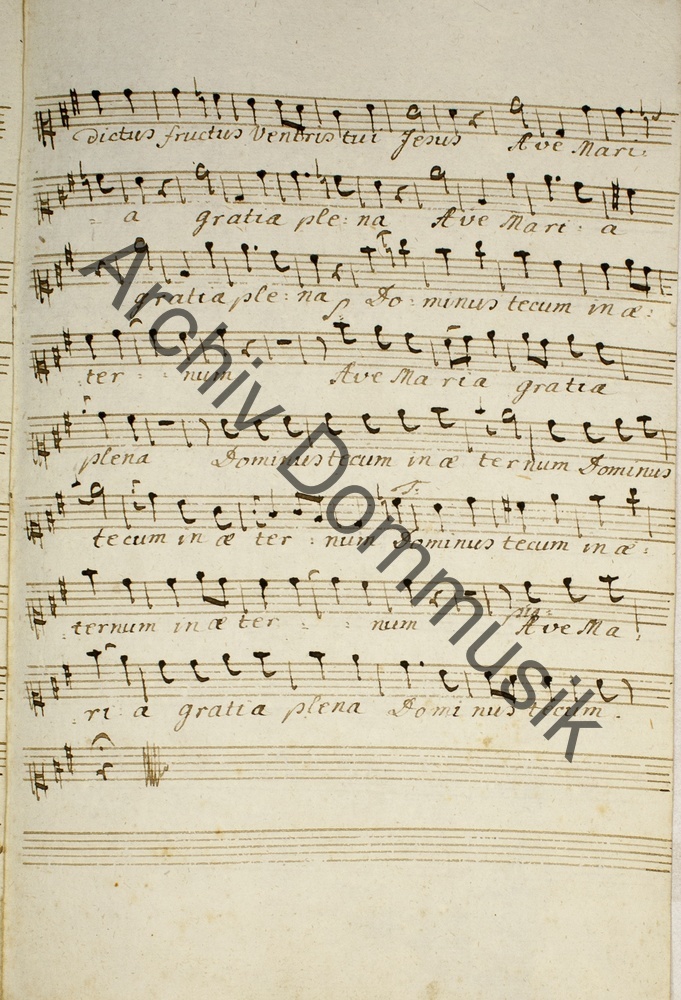 dictus fructus Ventris tui Jesus Ave Mari:
= a gratia ple: na Ave Mari: a
gratia ple: na p Do: minus tecum in æ:
ter: : num Ave Ma ria gratia
plena Dominus tecum in æ ternum Dominus
tecum in æ ter : num Dominus tecum in æ:
ternum in æ ter : : num Ave Ma:
ri: a gratia plena Domi nus tecum.
Archiv Dommusik